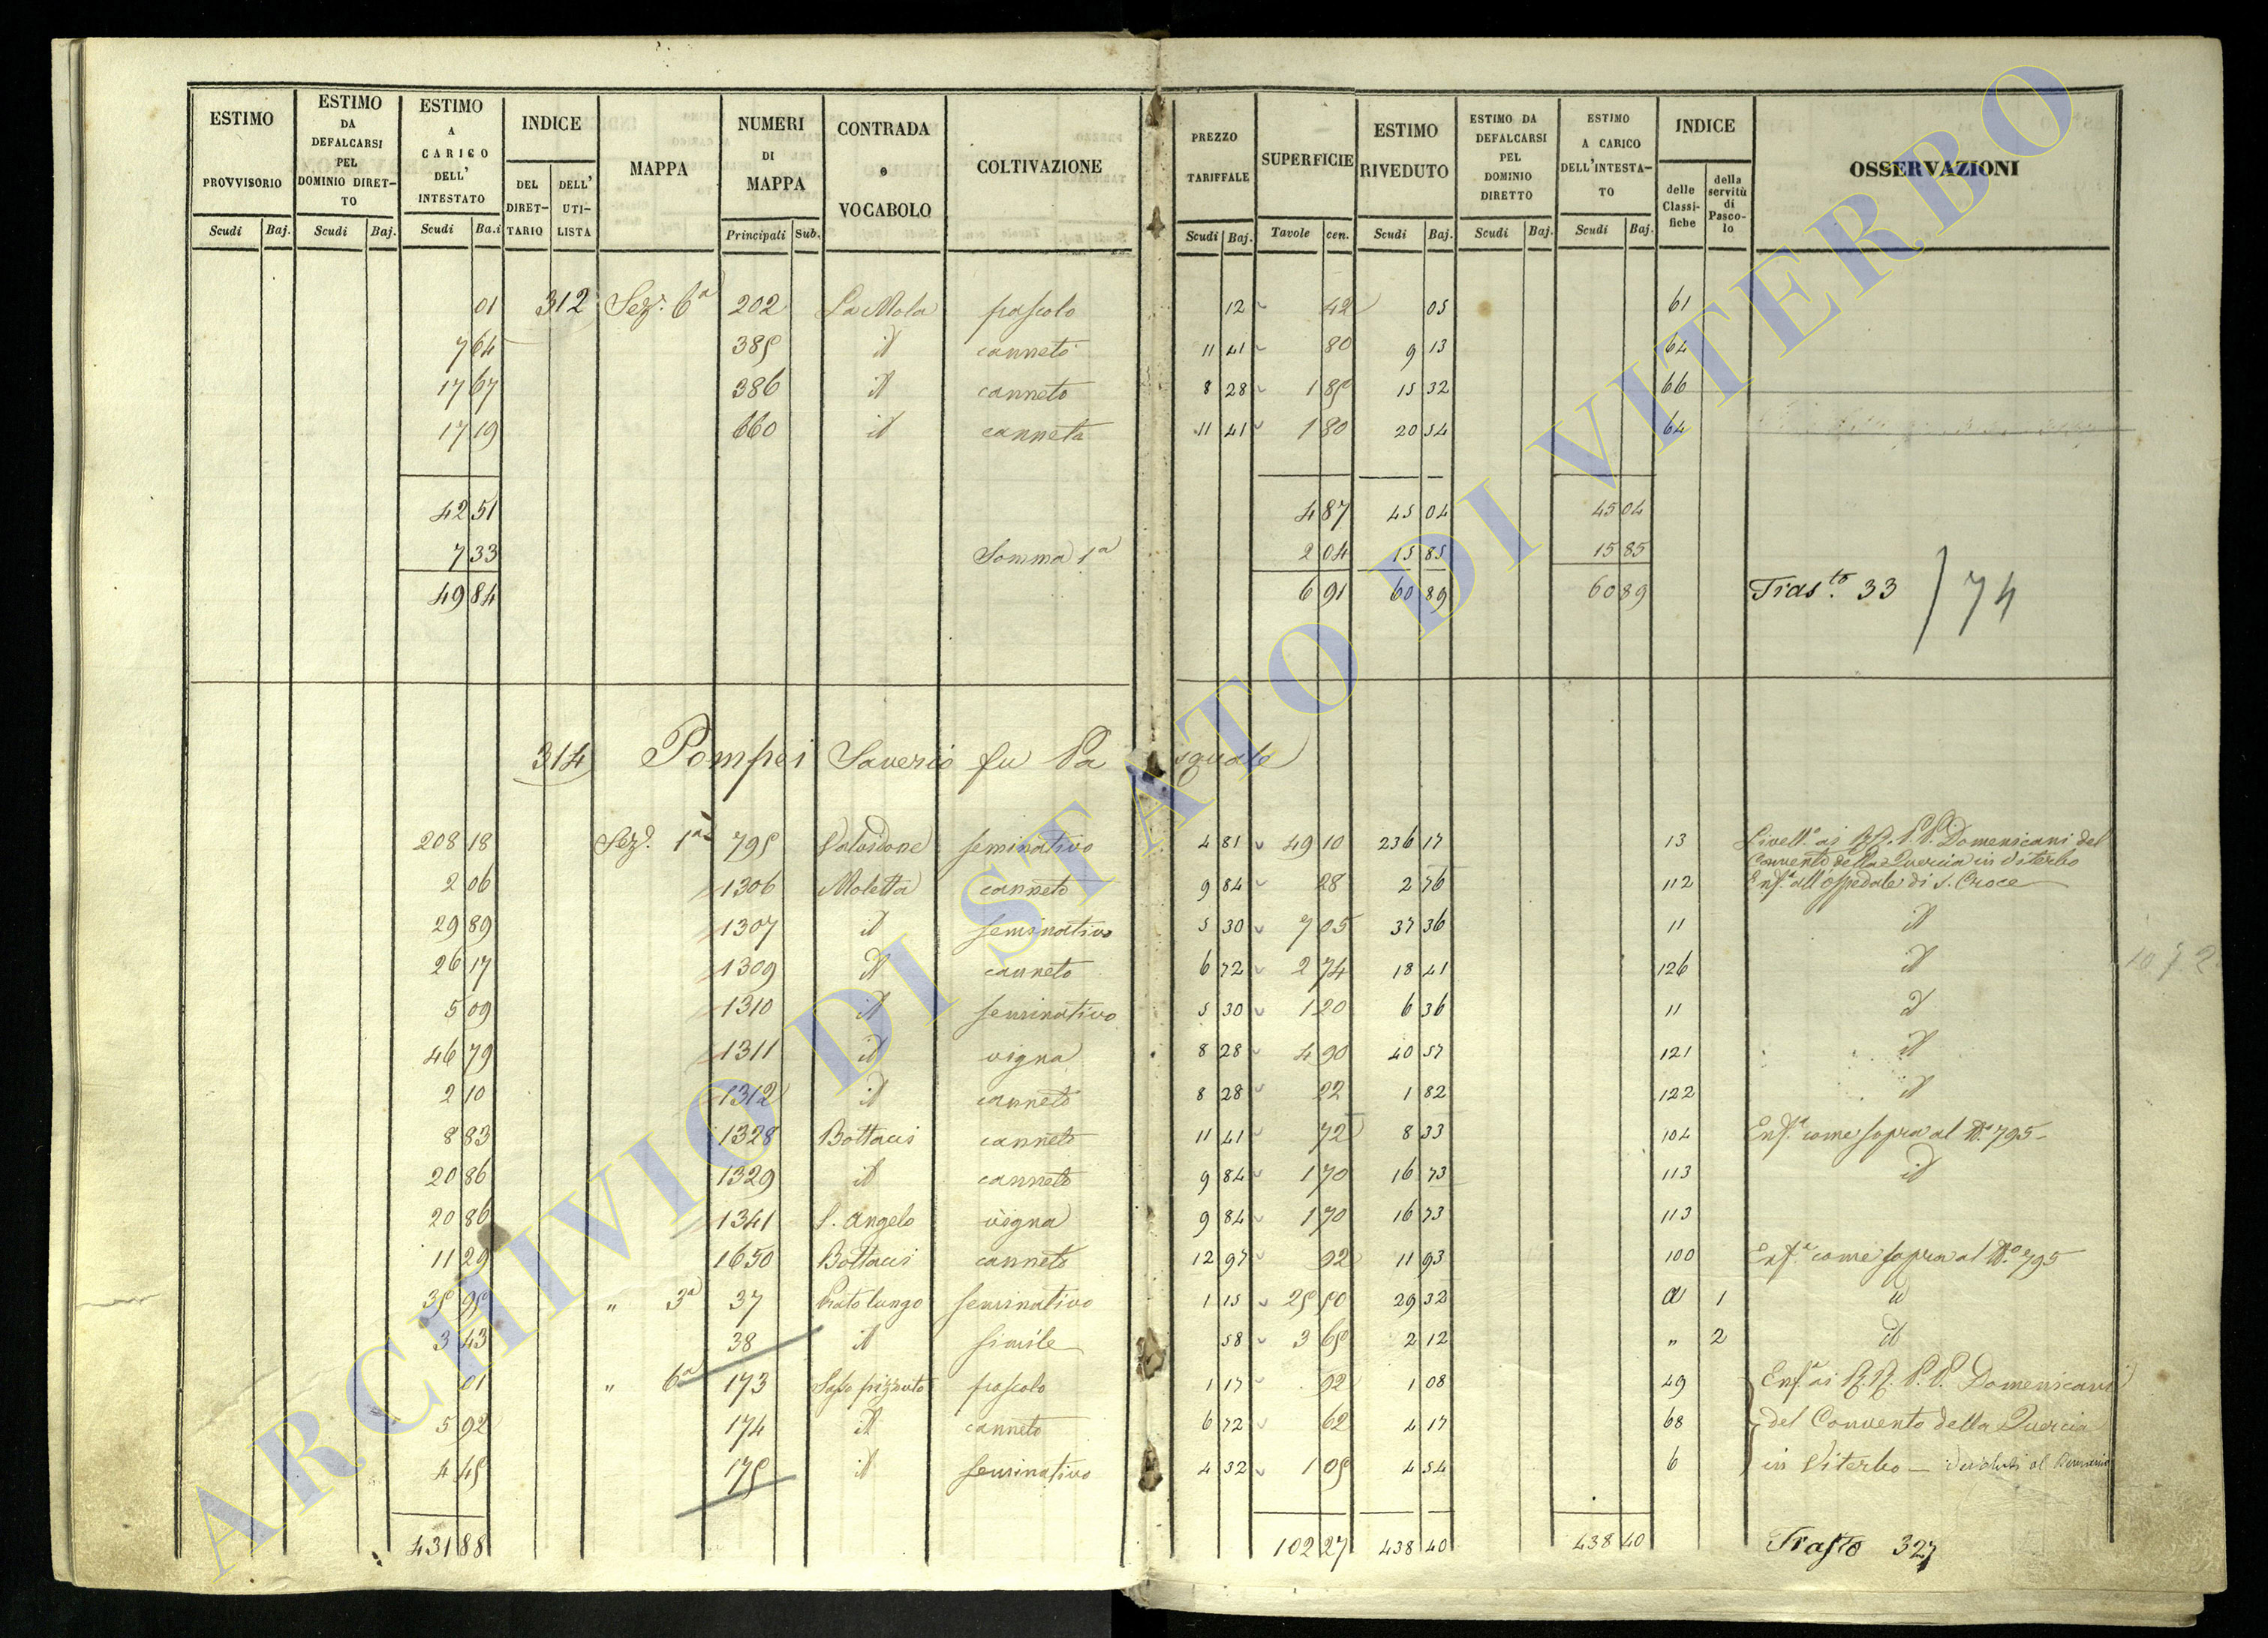 ESTIMO PROVVISORIO Scudi Baj. ESTIMO DA DEFALCARSI PEL DOMINIO DIRETTO Scudi Baj. ESTIMO A CARICO DELL' INTESTATO Scudi Ba.i INDICE DEL DIRETTARIO DELL' UTILISTA MAPPA NUMERI DI MAPPA Principali Sub. CONTRADA e VOCABOLO COLTIVAZIONE PREZZO TARIFFALE Scudi Baj. SUPERFICIE Tavole cen. ESTIMO RIVEDUTO Scudi Baj. ESTIMO DA DEFALCARSI PEL DOMINIO DIRETTO Scudi Baj. ESTIMO A CARICO DELL'INTESTATO Scudi Baj. INDICE delle Classifiche della servitù di Pascolo OSSERVAZIONI
01 312 Sez. 6a 202 La Mola pascolo 12 42 05 61
7 64 385 id canneto 11 41 80 9 13 64
17 67 386 id canneto 8 28 1 85 15 32 66
17 19 660 id canneta 11 41 1 80 20 54 64
42 51 4 87 45 04 45 04
7 33 Somma 1a 2 04 15 85 15 85
49 84 6 91 60 89 60 89 Tras.to 33 / 74
314 Pompei Saverio fu Pasquale
208 18 Sez. 1a 795 seminativo 4 81 49 10 236 17 13 Livell. ai RR. PP. Domenicani del Convento della Quercia in Viterbo
2 06 1306 Moletta canneto 9 84 28 2 76 112 Enf. all'ospedale di S. Croce
29 89 1307 id seminativo 5 30 7 05 37 36 11 id
26 17 1309 id canneto 6 72 2 74 18 41 126 id
5 09 1310 id seminativo 5 30 1 20 6 36 11 id
46 79 1311 id vigna 8 28 4 90 40 57 121 id
2 10 1312 id canneto 8 28 22 1 82 122 id
8 83 1328 Bottacis canneto 11 41 72 8 33 104 Enf. come sopra al No. 795
20 86 1329 id canneto 9 84 1 70 16 73 113 id
20 86 1341 S. Angelo vigna 9 84 1 70 16 73 113
11 29 1650 Bottacis canneto 12 97 92 11 93 100 Enf. come sopra al No. 795
35 95 " 3a 37 Prato lungo seminativo 1 15 25 50 29 32 1 id
3 43 38 id simile 58 3 65 2 12 " 2 id
01 " 6a 173 Sasso pizzuto pascolo 1 17 92 1 08 49 Enf. ai R.R. P.P. Domenicani
5 92 174 id canneto 6 72 62 4 17 68 del Convento della Quercia
4 45 175 id seminativo 4 32 1 05 4 54 6 in Viterbo — devoluti al Demanio
431 88 102 27 438 40 438 40 Trasto 327
ARCHIVIO DI STATO DI VITERBO